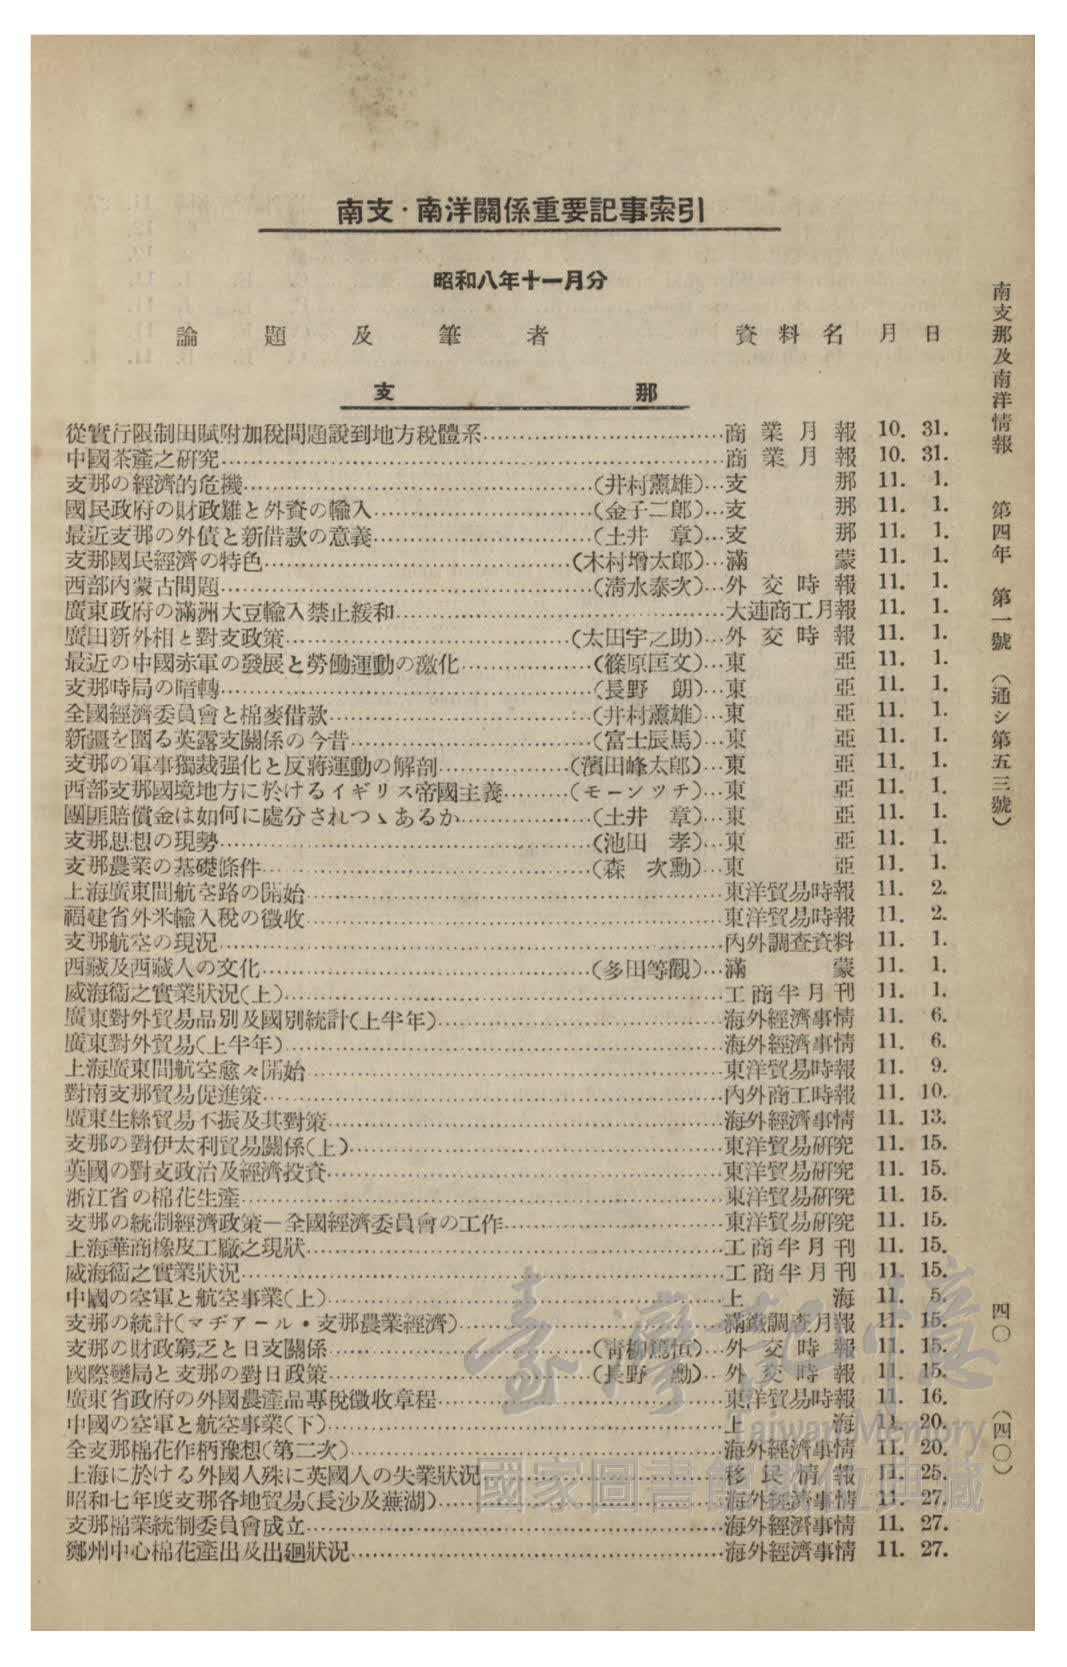 南支・南洋關係重要記事索引
昭和八年十一月分
論題及筆者 資料名 月 日
支那
從實行限制田賦附加稅問題說到地方稅體系……商業月報 10. 31.
中國茶產之研究……商業月報 10. 31.
支那の經濟的危機……(井村薰雄)…支那 11. 1.
國民政府の財政難と外資の輸入……(金子二郎)…支那 11. 1.
最近支那の外債と新借款の意義……(土井章)…支那 11. 1.
支那國民經濟の特色……(木村增太郎)…滿蒙 11. 1.
西部內蒙古問題……(淸水泰次)…外交時報 11. 1.
廣東政府の滿洲大豆輸入禁止緩和……大連商工月報 11. 1.
廣田新外相と對支政策……(太田宇之助)…外交時報 11. 1.
最近の中國赤軍の發展と勞働運動の激化……(篠原匡文)…東亞 11. 1.
支那時局の暗轉……(長野朗)…東亞 11. 1.
全國經濟委員會と棉麥借款……(井村薰雄)…東亞 11. 1.
新疆を圍る英露支關係の今昔……(富士辰馬)…東亞 11. 1.
支那の軍事獨裁强化と反蔣運動の解剖……(濱田峰太郎)…東亞 11. 1.
西部支那國境地方に於けるイギリス帝國主義……(モーンツチ)…東亞 11. 1.
團匪賠償金は如何に處分されつゝあるか……(土井章)…東亞 11. 1.
支那思想の現勢……(池田孝)…東亞 11. 1.
支那農業の基礎條件……(森次勳)…東亞 11. 1.
上海廣東間航空路の開始……東洋貿易時報 11. 2.
福建省外米輸入稅の徵收……東洋貿易時報 11. 2.
支那航空の現況……內外調查資料 11. 1.
西藏及西藏人の文化……(多田等觀)…滿蒙 11. 1.
威海衞之實業狀況(上)……工商半月刊 11. 1.
廣東對外貿易品別及國別統計(上半年)……海外經濟事情 11. 6.
廣東對外貿易(上半年)……海外經濟事情 11. 6.
上海廣東間航空愈々開始……東洋貿易時報 11. 9.
對南支那貿易促進策……內外商工時報 11. 10.
廣東生絲貿易不振及其對策……海外經濟事情 11. 13.
支那の對伊太利貿易關係(上)……東洋貿易硏究 11. 15.
英國の對支政治及經濟投資……東洋貿易硏究 11. 15.
浙江省の棉花生產……東洋貿易硏究 11. 15.
支那の統制經濟政策－全國經濟委員會の工作……東洋貿易硏究 11. 15.
上海華商橡皮工廠之現狀……工商半月刊 11. 15.
威海衞之實業狀況……工商半月刊 11. 15.
中國の空軍と航空事業(上)……上海 11. 5.
支那の統計(マヂアール・支那農業經濟)……滿鐵調查月報 11. 15.
支那の財政窮乏と日支關係……(靑柳篤恒)…外交時報 11. 15.
國際變局と支那の對日政策……(長野勳)…外交時報 11. 15.
廣東省政府の外國農產品專稅徵收章程……東洋貿易時報 11. 16.
中國の空軍と航空事業(下)……上海 11. 20.
全支那棉花作柄豫想(第二次)……海外經濟事情 11. 20.
上海に於ける外國人殊に英國人の失業狀況……移民情報 11. 25.
昭和七年度支那各地貿易(長沙及蕪湖)……海外經濟事情 11. 27.
支那棉業統制委員會成立……海外經濟事情 11. 27.
鄭州中心棉花產出及出廻狀況……海外經濟事情 11. 27.
南支那及南洋情報 第四年 第一號 (通シ第五三號) 四〇 (四〇)
臺灣記憶
Taiwan Memory
國家圖書館數位典藏